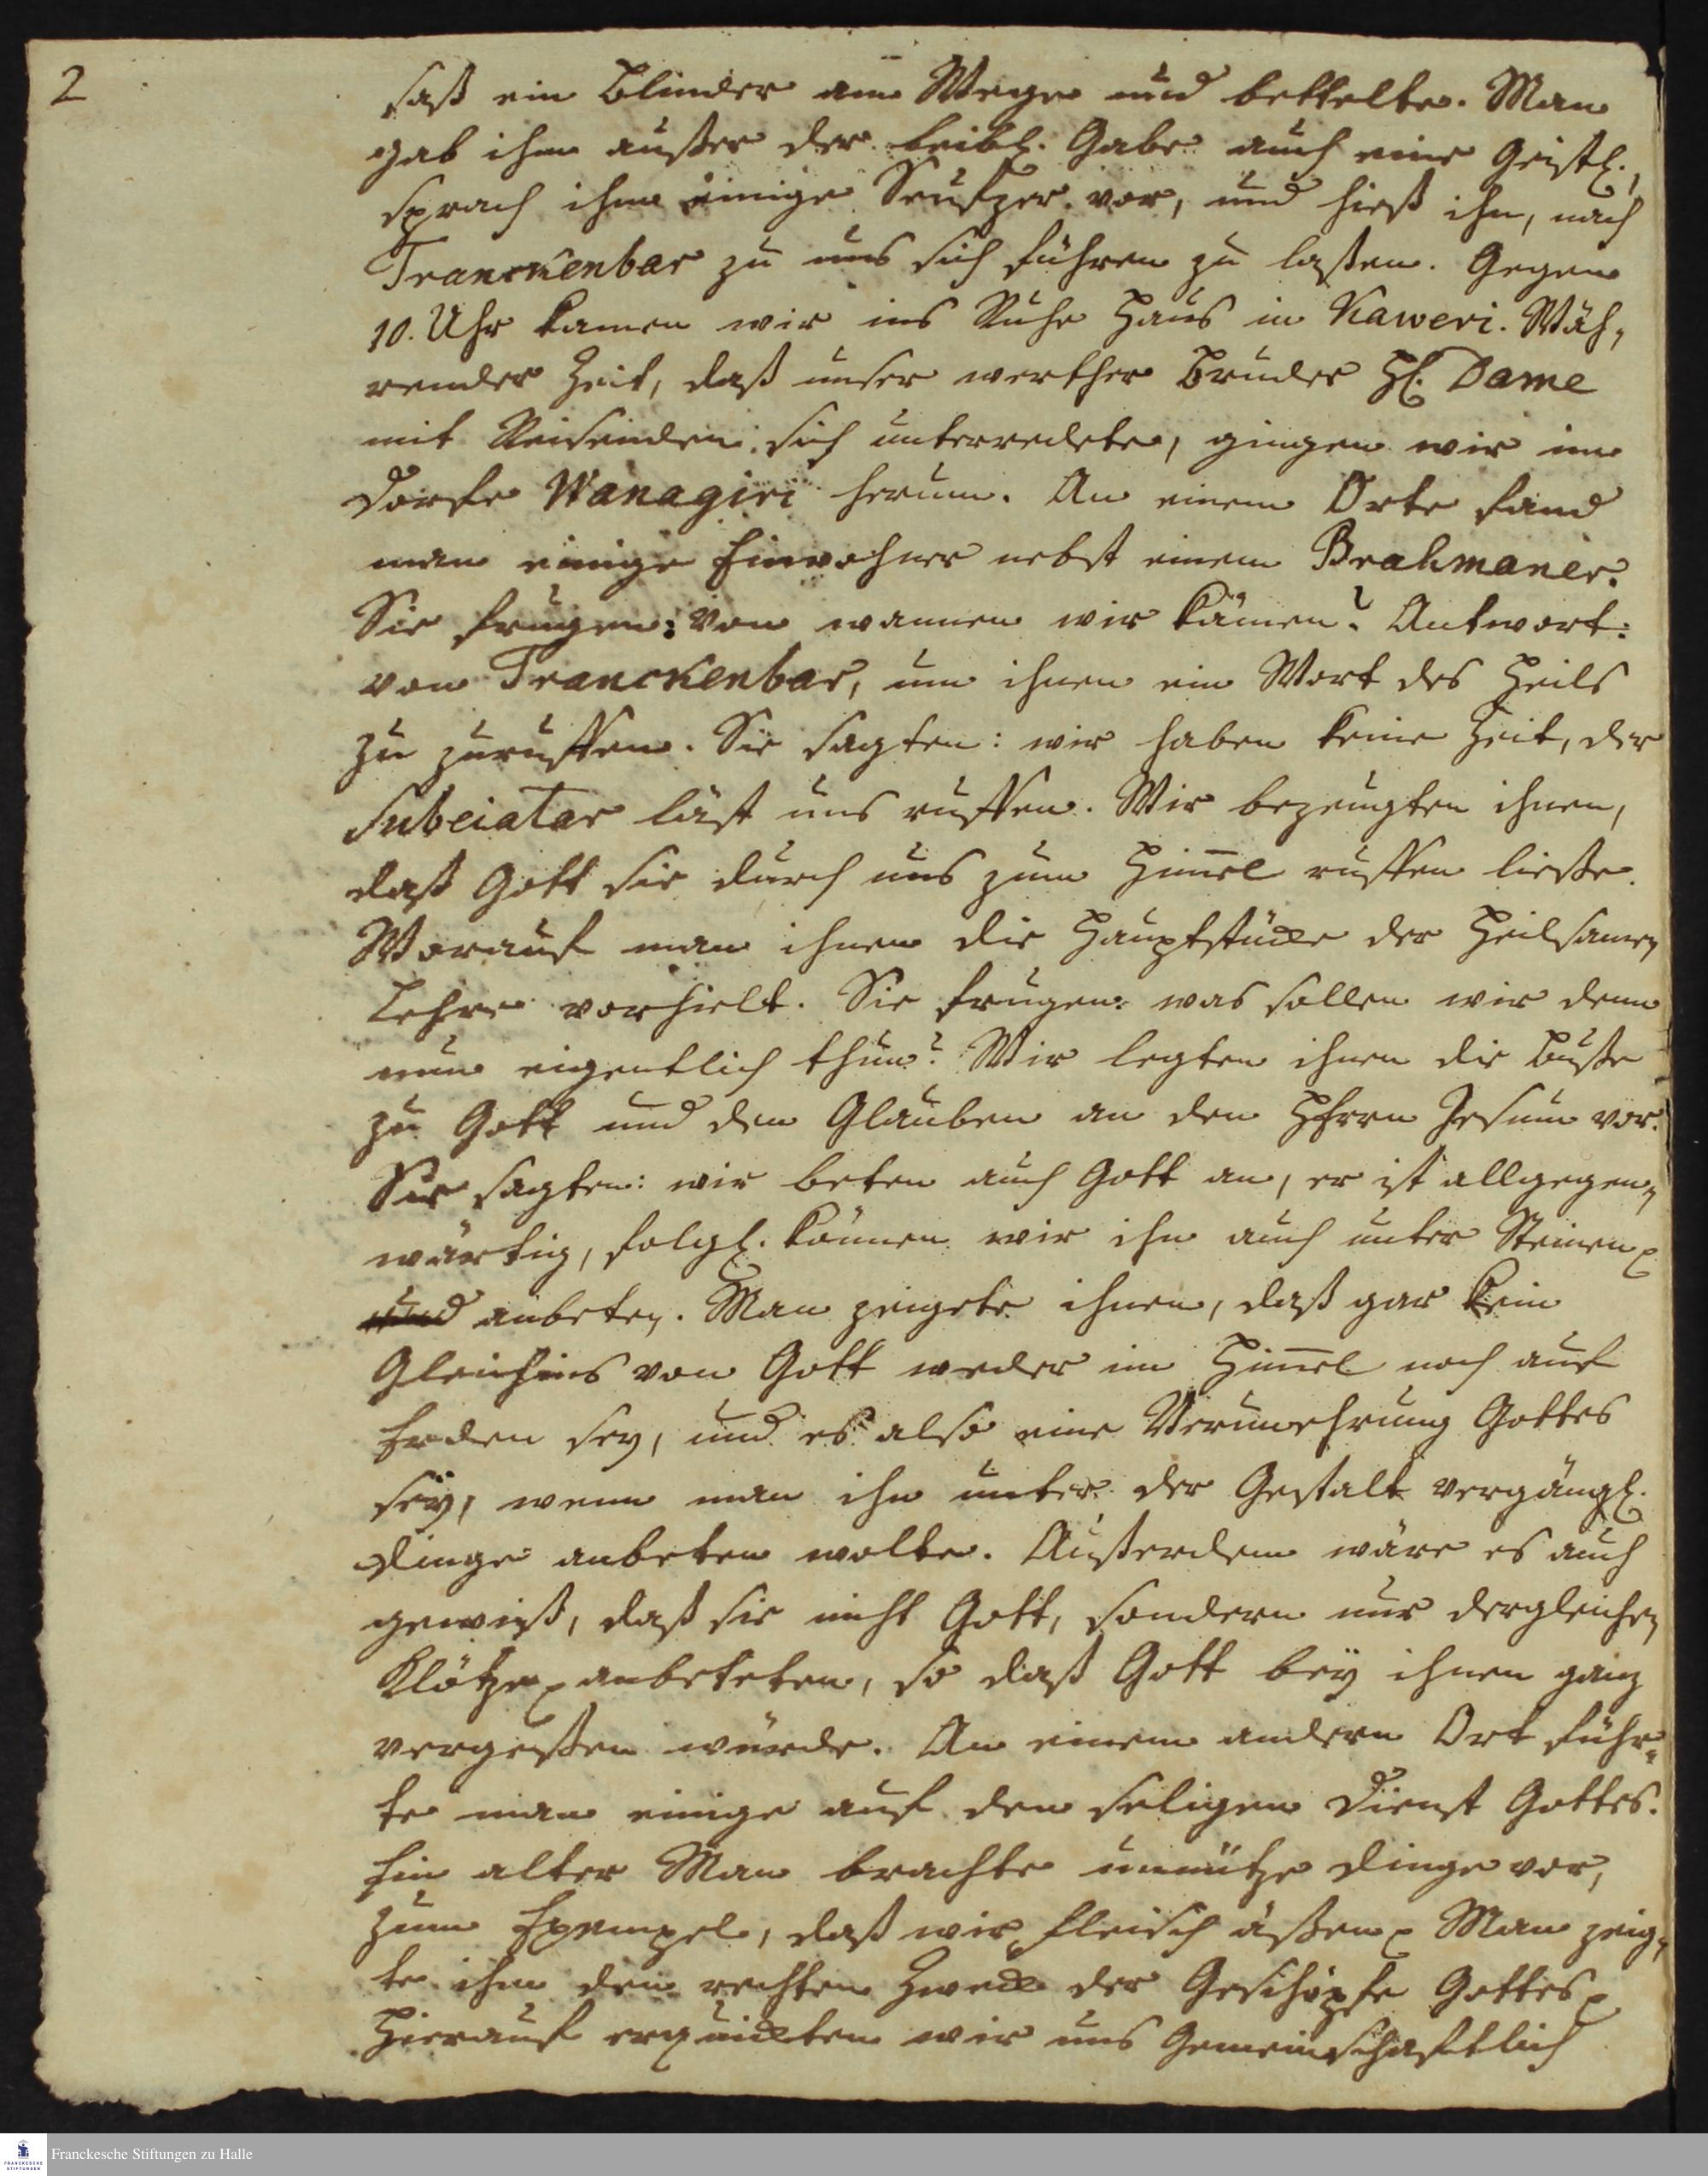 2
saß ein Blinder am Wege und bettelte. Man
gab ihm außer der leibl. Gabe auch eine Geistl.,
sprach ihm einige Seufzer vor, und hieß ihn, nach
Tranckenbar zu uns sich führen zu laßen. Gegen
10. Uhr kamen wir ins Ruhe Haus in Kaweri. Wäh-
render Zeit, daß unser werther Bruder H. Dame
mit Reisenden sich unterredete, gingen wir im
Dorfe Wanagiri herum. An einem Orte fand
man einige Einwohner nebst einem Brahmaner.
Sie frugen: von wannen wir kämen? Antwort:
von Tranckenbar, um ihnen ein Wort des Heils
zu zuruffen. Sie sagten: wir haben keine Zeit, der
Subeiatar läst uns ruffen. Wir bezeugten ihnen,
daß Gott sie durch uns zum Him̄el ruffen ließe.
Worauf man ihnen die Hauptstücke der Heilsamen
Lehre vorhielt. Sie frugen: was sollen wir denn
nun eigentlich thun? Wir legten ihnen die Buße
zu Gott und den Glauben an den HErrn Jesum vor.
Sie sagten: wir beten auch Gott an, er ist allgegen-
wärtig, folgl. können wir ihn auch unter Steinen
und anbeten. Man zeigete ihnen, daß gar kein
Gleichnis von Gott weder im Him̄el noch auf
Erden sey, und es also eine Verunehrung Gottes
sey, wenn man ihn unter der Gestalt vergängl.
Dinge anbeten wolte. Außerdem wäre es auch
gewiß, daß sie nicht Gott, sondern nur dergleichen
Klötze anbeteten, so daß Gott bey ihnen ganz
vergeßen würde. An einem andern Ort führ-
te man einige auf den seligen Dienst Gottes.
Ein alter Man brachte unnütze Dinge vor,
zum Exempel, daß wir Fleisch äßen Man zeig-
te ihm den rechten Zweck der Geschöpfe Gottes
Hierauf erquickten wir uns Gemeinschaftlich
Franckesche Stiftungen zu Halle